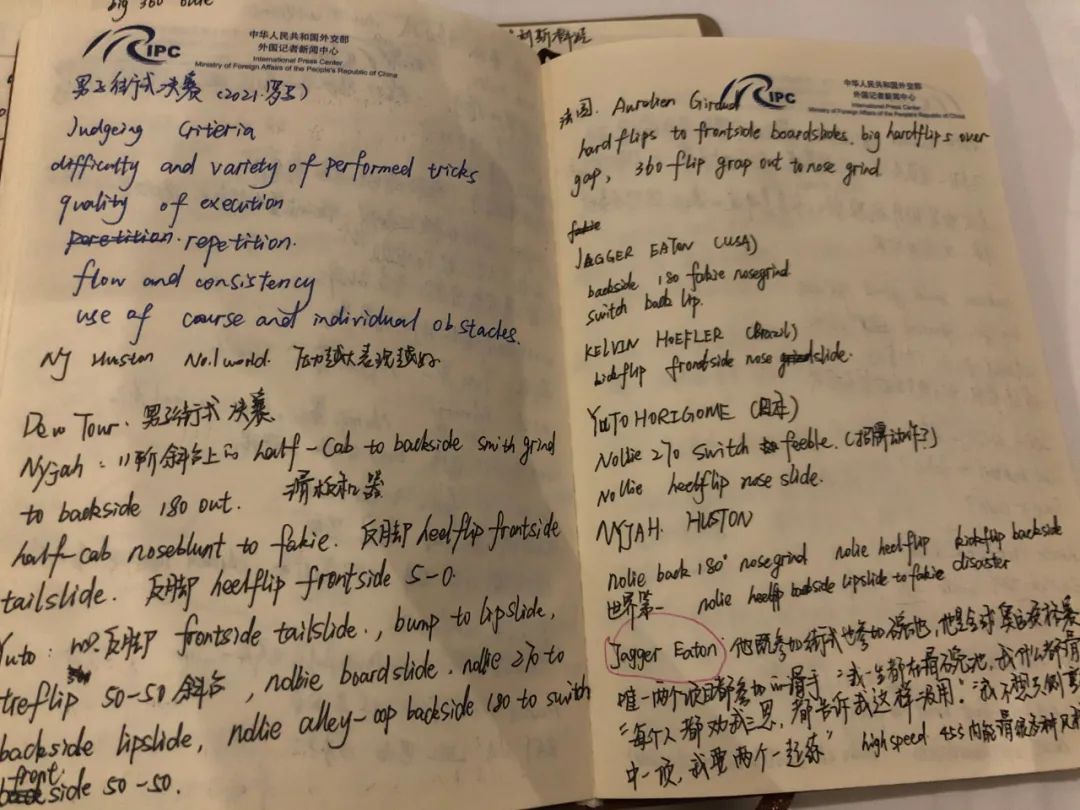 big 360 over
IPC
中华人民共和国外交部
外国记者新闻中心
International Press Center
Ministry of Foreign Affairs of the People's Republic of China
男子街式决赛 (2021.罗马)
Judgeing Criteria
difficulty and variety of performed tricks
quality of execution
repetition.
flow and consistency
use of course and individual obstacles.
NJ Huston No.1 world. 压力越大表现越好
Dew Tour. 男子街式决赛
Nyjah: 11阶斜台上的 half-Cab to backside smith grind
to backside 180 out. 滑板机器
half-cab noseblunt to fakie. 反脚 heelflip frontside
tailslide. 反脚 heelflip frontside 5-0.
Yuto: no2. 反脚 frontside tailslide., bump to lipslide,
treflip 50-50 斜台, nollie boardslide. nollie 270 to
backside lipslide, nollie alley-oop backside 180 to switch
front side 50-50.
IPC
中华人民共和国外交部
外国记者新闻中心
International Press Center
Ministry of Foreign Affairs of the People's Republic of China
法国. Aurelien Giraud
hardflips to frontside boardslides. big hardflips over
gap, 360-flip grap out to nose grind
fakie
JAGGER EATON (USA)
backside 180 fakie nosegrind
switch back lip.
KELVIN HOEFLER (Brazil)
kickflip frontside nose slide.
YUTO HORIGOME (日本)
Nollie 270 switch feeble. (招牌动作?)
Nollie heelflip nose slide.
NYJAH. HUSTON
nolie back 180° nosegrind nolie heelflip kickflip backside
disaster
世界第一 nolie backside lipslide to fakie
Jagger Eaton: 他既参加街式也参加碗池, 他是全球
唯一两个项目都参加的滑手 "我一生都在滑碗池, 我什么都滑
"每个人都劝我三思, 都告诉我这样没用." "我不想
中一项, 我要两个一起练" high speed 45s 内能滑很多种